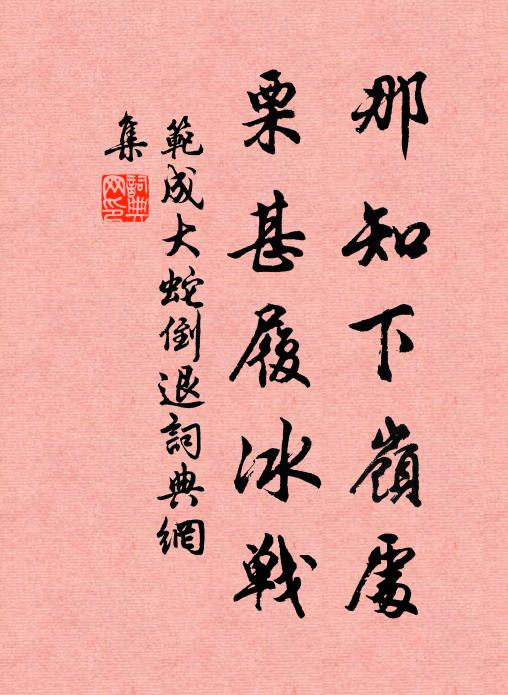 那知下嶺處
栗甚履冰戰
範成大蛇倒退詞典網
集
詞典网印